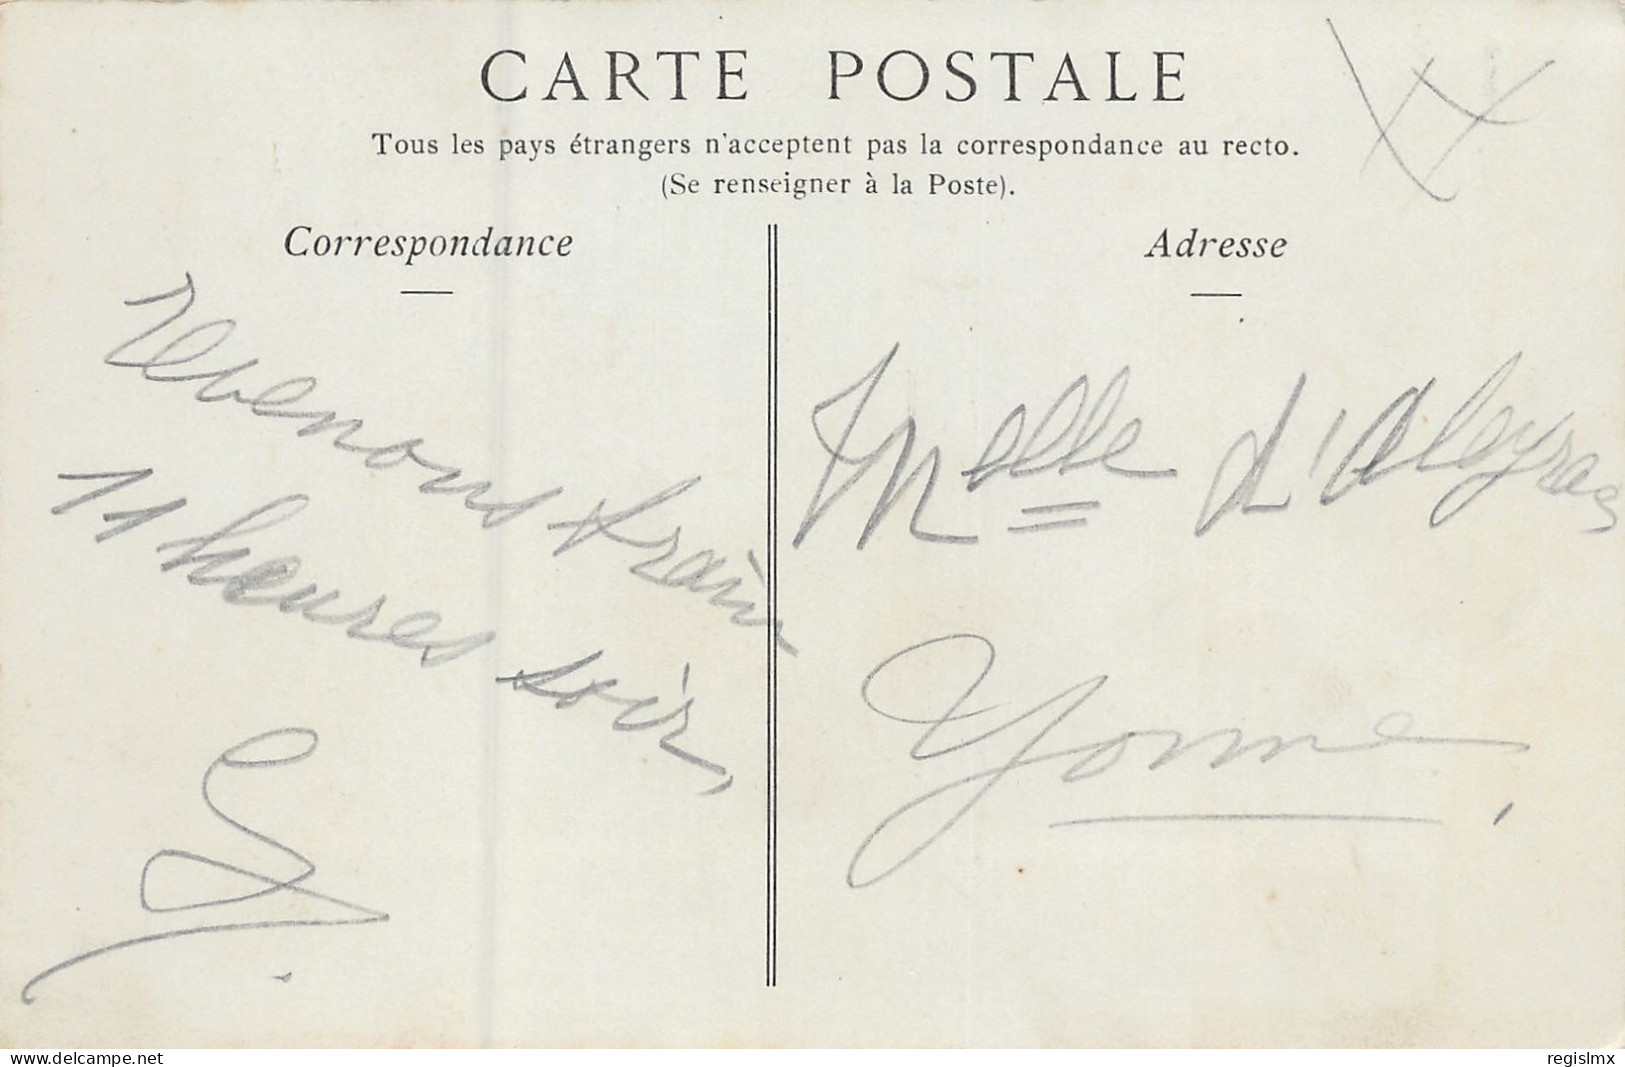 CARTE POSTALE
Tous les pays étrangers n'acceptent pas la correspondance au recto.
(Se renseigner à la Poste).
Correspondance
revenons train
11 heures soir,
Adresse
Melle d'Aleyrac
Yonne,
www.delcampe.net
regislmx